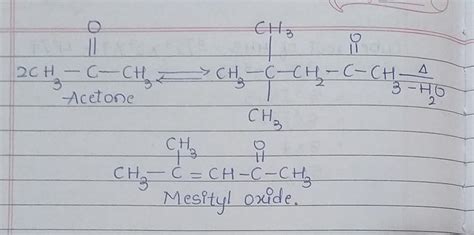 O CH3 O
|| | ||
2CH3-C-CH3 ⇌ CH3-C-CH2-C-CH3 Δ -H2O
Acetone |
CH3
CH3 O
| ||
CH3-C=CH-C-CH3
Mesityl oxide.